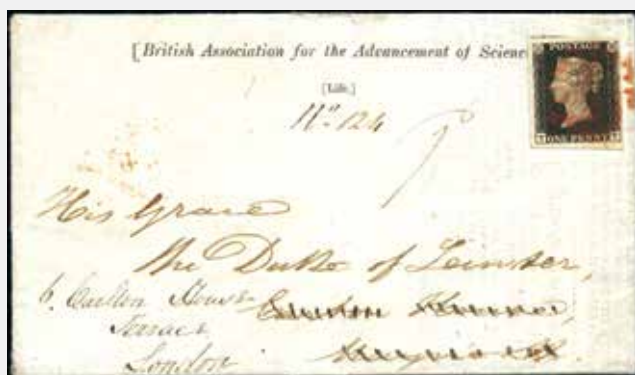 [British Association for the Advancement of Scienc
[Life.]
No. 124
POSTAGE
ONE PENNY
His Grace
The Duke of Leinster,
6. Carlton House
Terrace
London